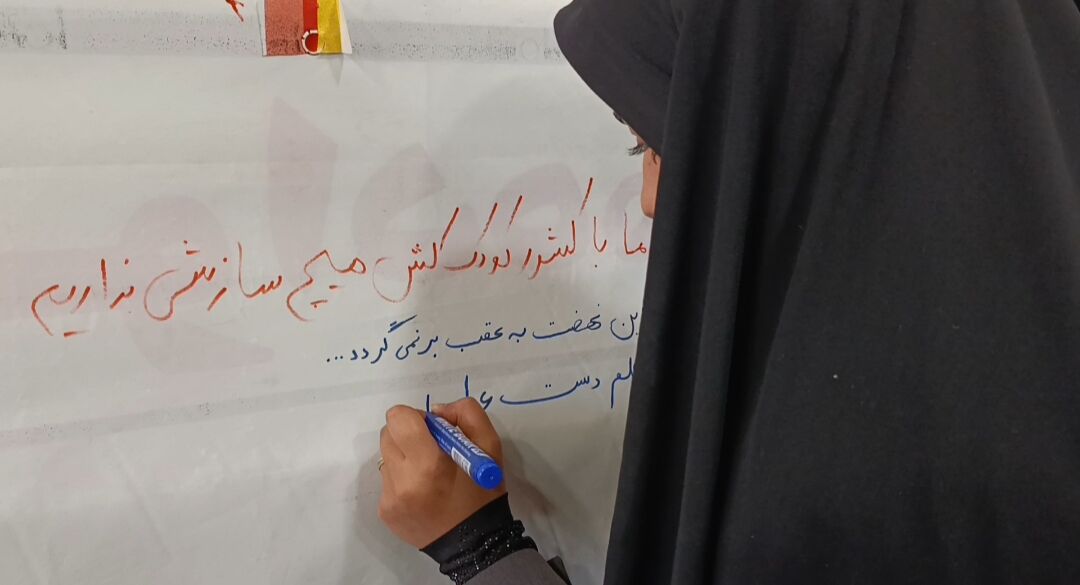 ما با کشور کودک کش هیچ سازشی نداریم
این نهضت به عقب برنمی گردد...
علم دست